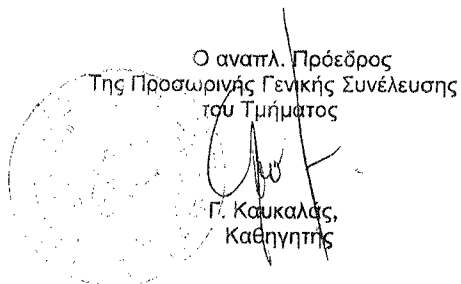 Ο αναπλ. Πρόεδρος
Της Προσωρινής Γενικής Συνέλευσης
του Τμήματος
Γ. Καυκαλάς,
Καθηγητής